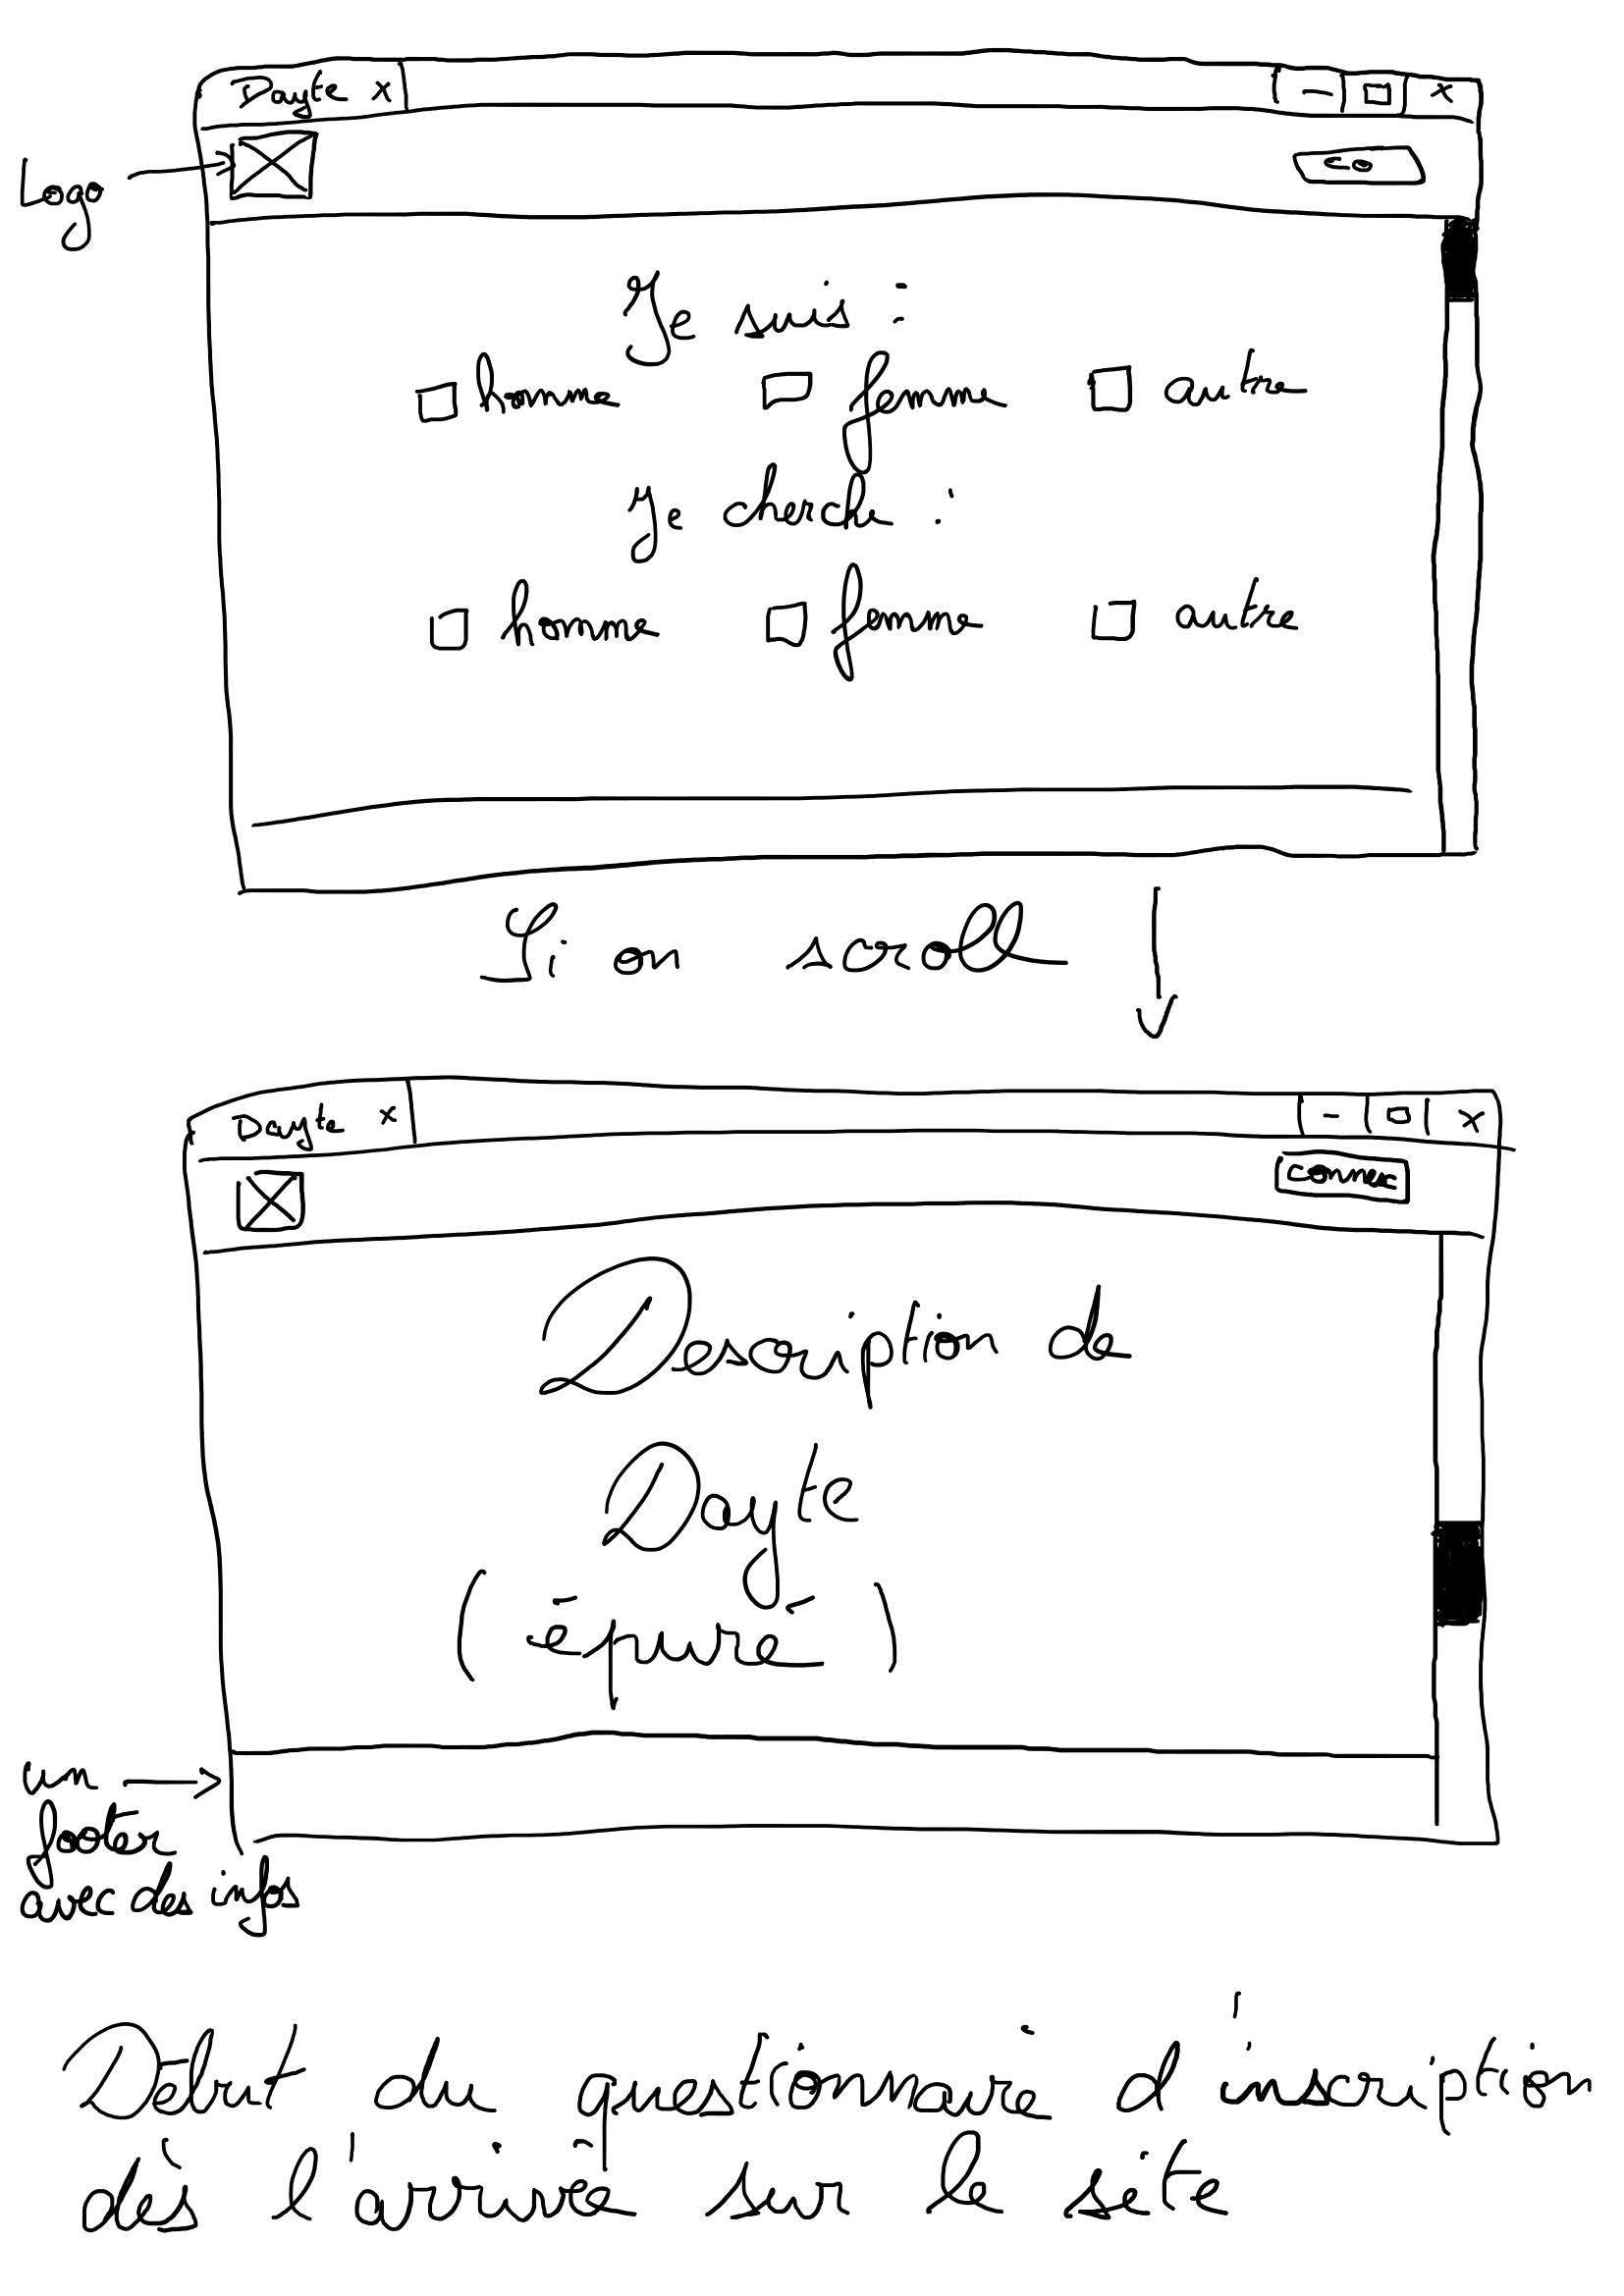 Dayte x - x
Logo
co
Je suis :
homme femme autre
Je cherche :
homme femme autre
Si on scroll
Dayte x - x
connec
Description de
Dayte
(épuré)
un
footer
avec des infos
Début du questionnaire d'inscription
dès l'arrivée sur le site